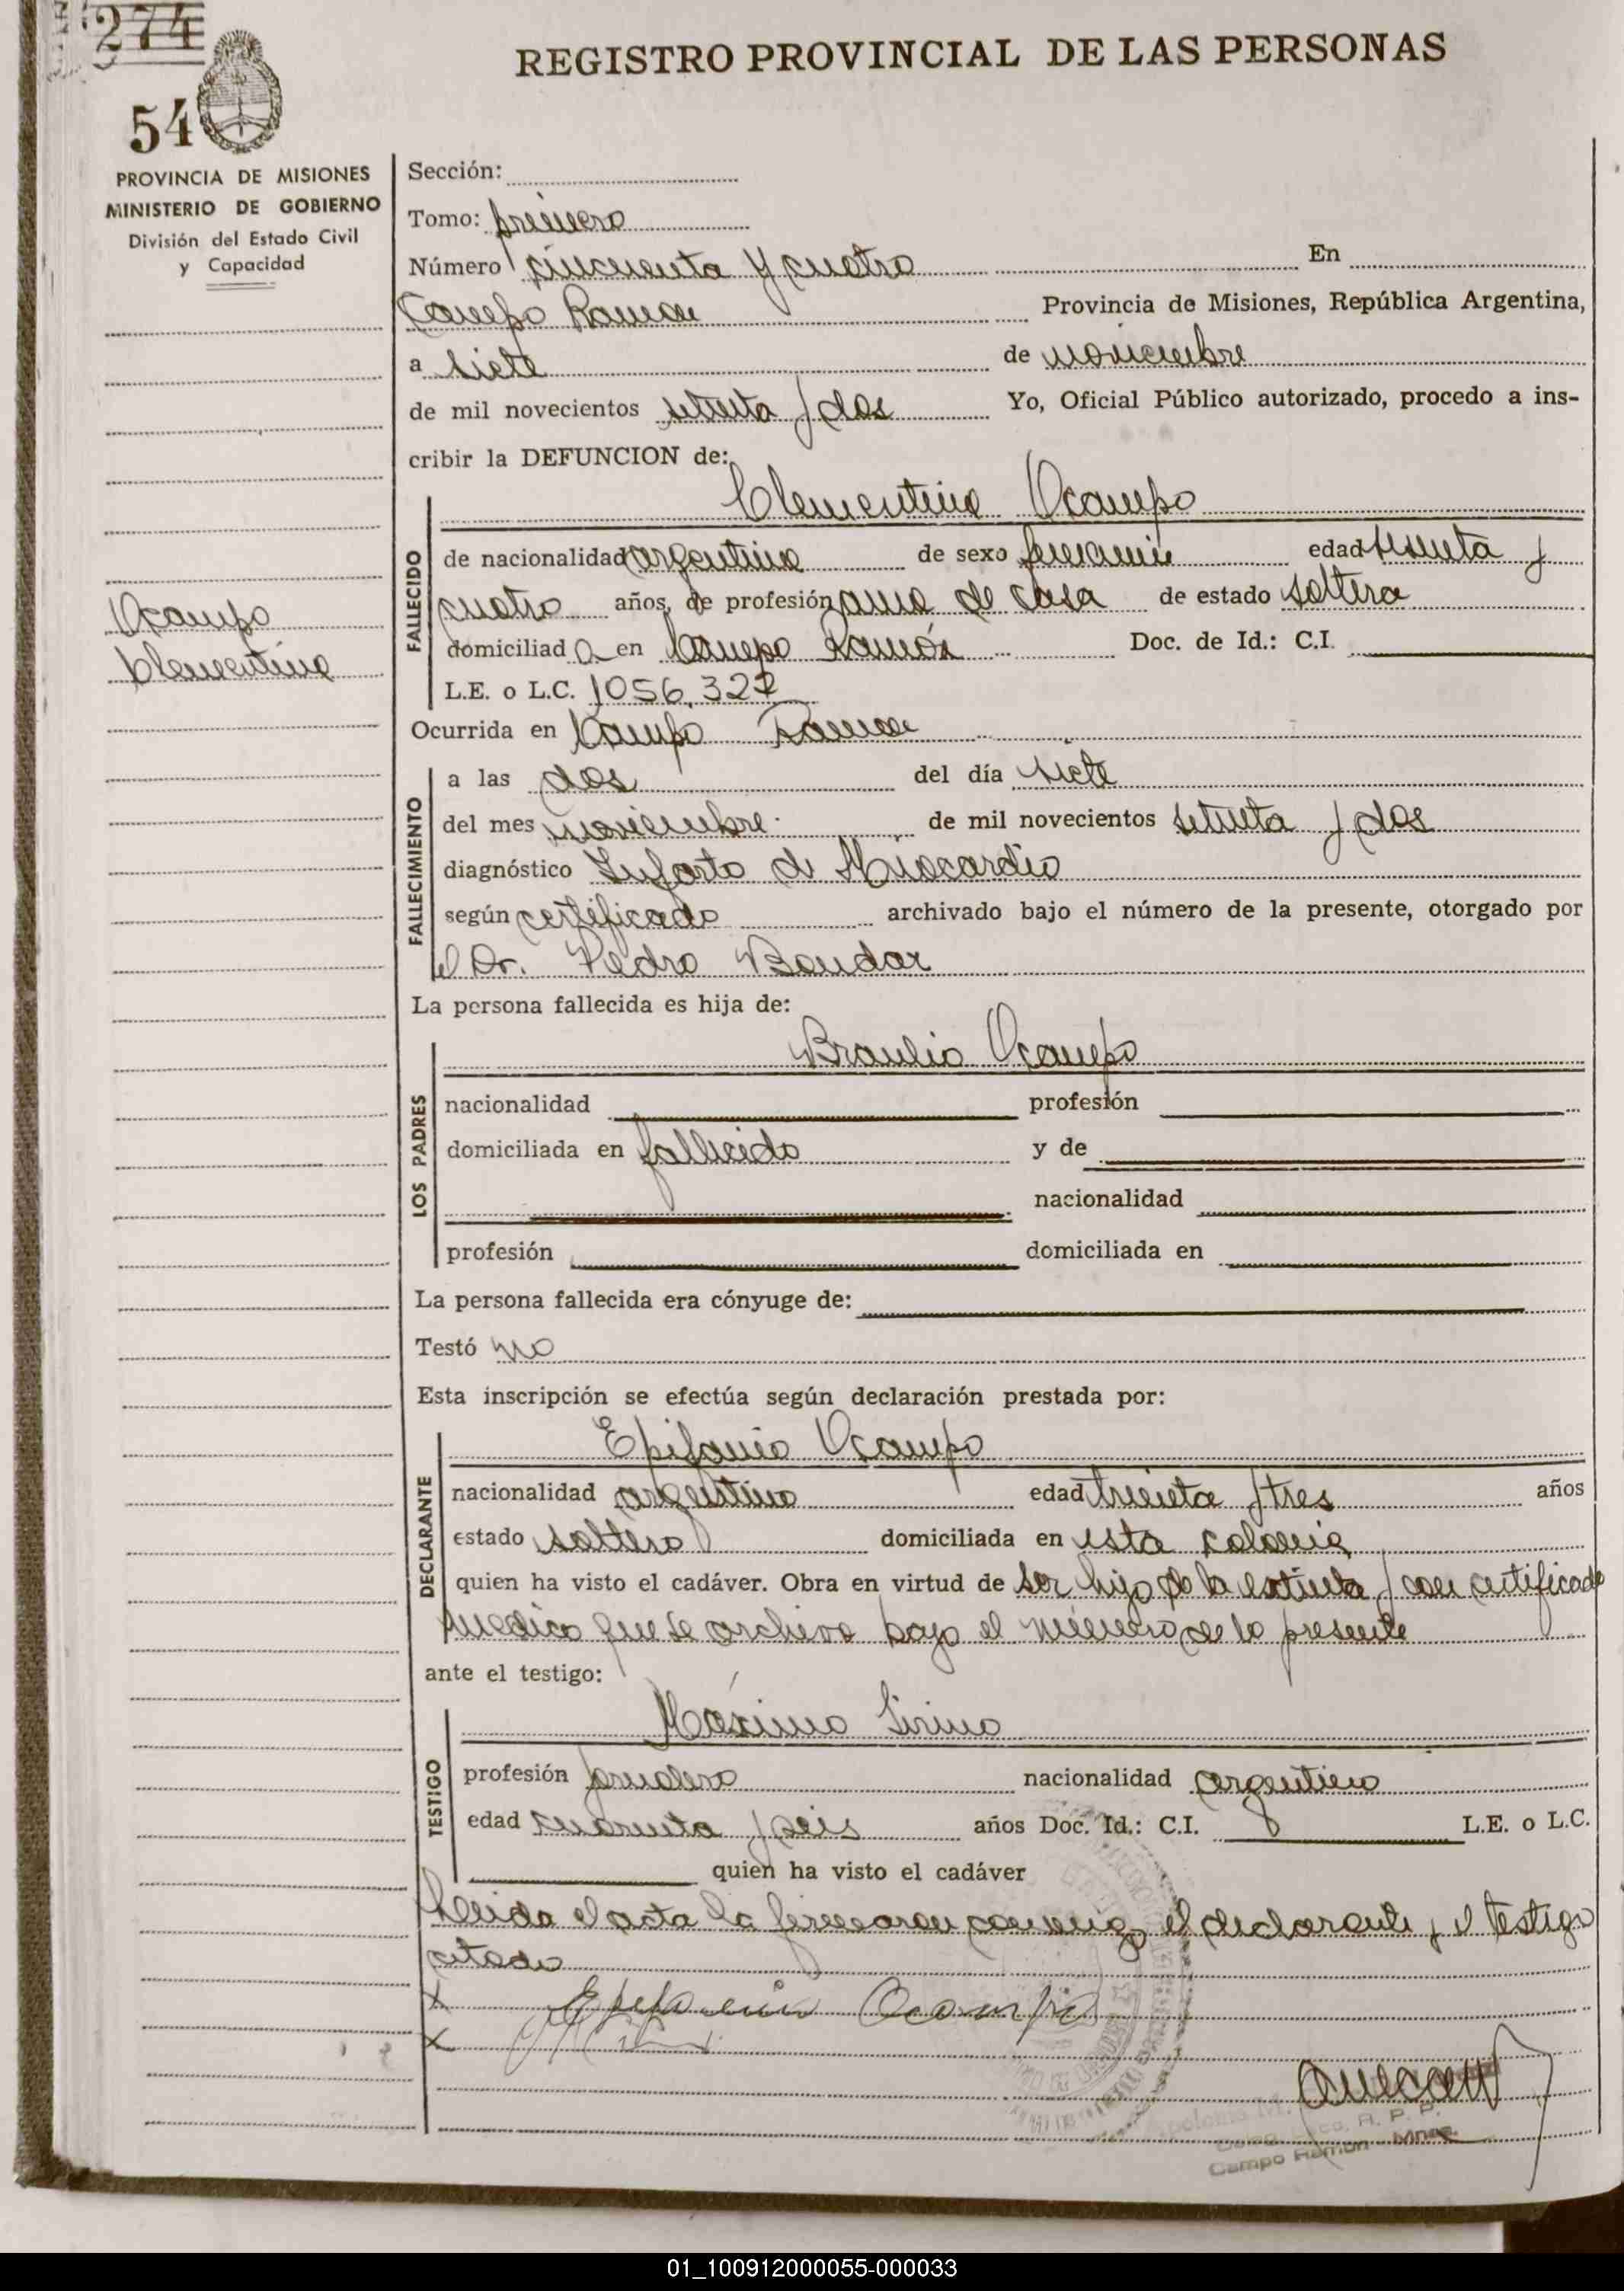 274
54
REGISTRO PROVINCIAL DE LAS PERSONAS
PROVINCIA DE MISIONES
MINISTERIO DE GOBIERNO
División del Estado Civil
y Capacidad
Ocampo
Clementina
Sección:
Tomo: primero
Número cincuenta y cuatro En
Campo Ramon Provincia de Misiones, República Argentina,
a siete de noviembre
de mil novecientos setenta y dos Yo, Oficial Público autorizado, procedo a ins-
cribir la DEFUNCION de:
Clementina Ocampo
FALLECIDO
de nacionalidad argentina de sexo femenino edad sesenta y
cuatro años, de profesión ama de casa de estado soltera
domiciliad a en Campo Ramón Doc. de Id.: C.I.
L.E. o L.C. 1056.327
Ocurrida en Campo Ramon
FALLECIMIENTO
a las dos del día siete
del mes noviembre de mil novecientos setenta y dos
diagnóstico Infarto de Miocardio
según certificado archivado bajo el número de la presente, otorgado por
el Dr. Pedro
La persona fallecida es hija de:
Braulio Ocampo
LOS PADRES
nacionalidad profesión
domiciliada en fallecido y de
nacionalidad
profesión domiciliada en
La persona fallecida era cónyuge de:
Testó no
Esta inscripción se efectúa según declaración prestada por:
Epifanio Ocampo
DECLARANTE
nacionalidad argentino edad treinta y tres años
estado soltero domiciliada en esta colonia
quien ha visto el cadáver. Obra en virtud de ser hijo de la extinta y con certificado
medico que se archiva bajo el número de la presente
ante el testigo:
Máximo Sirino
TESTIGO
profesión jornalero nacionalidad argentino
edad cuarenta y seis años Doc. Id.: C.I. L.E. o L.C.
quien ha visto el cadáver
Leida el acta la firmaron conmigo el declarante y el testigo
citado
x Epifanio Ocampo
x
Campo Ramon - Mnes.
01_100912000055-000033